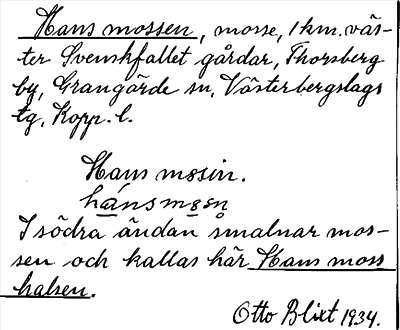 Hans mossen, mosse, 1 km. väs-
ter Svenskfallet gårdar, Thorsberg
by, Grangärde sn, Västerbergslags
tg, Kopp. l.
Hans mosin.
I södra ändan smalnar mos-
sen och kallas här Hans moss
halsen.
Otto Blixt 1934.